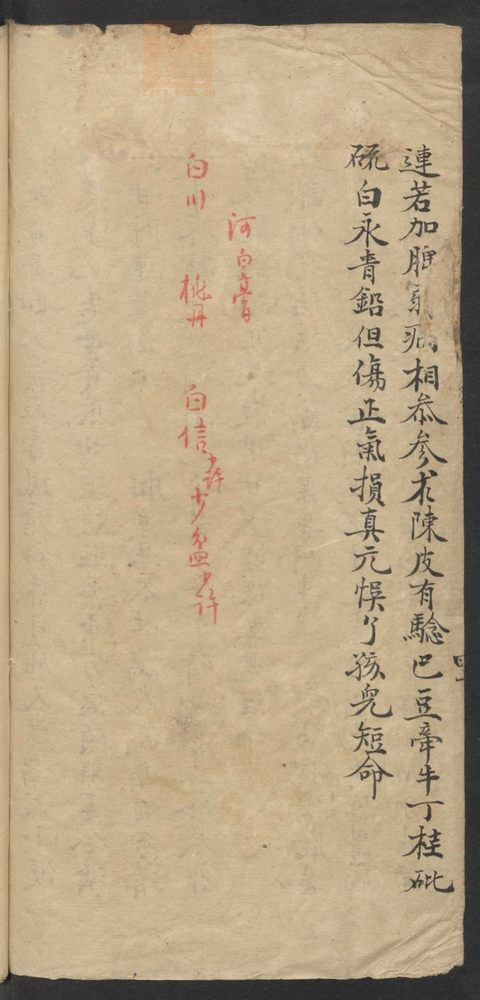 連若加脾氣弱相恭參术陳皮有騐巴豆牵牛丁桂砒
硫白永青鉛但傷正氣損真元悮了孩兒短命
河白膏
白川 桃丹 白信少許 少盐少許